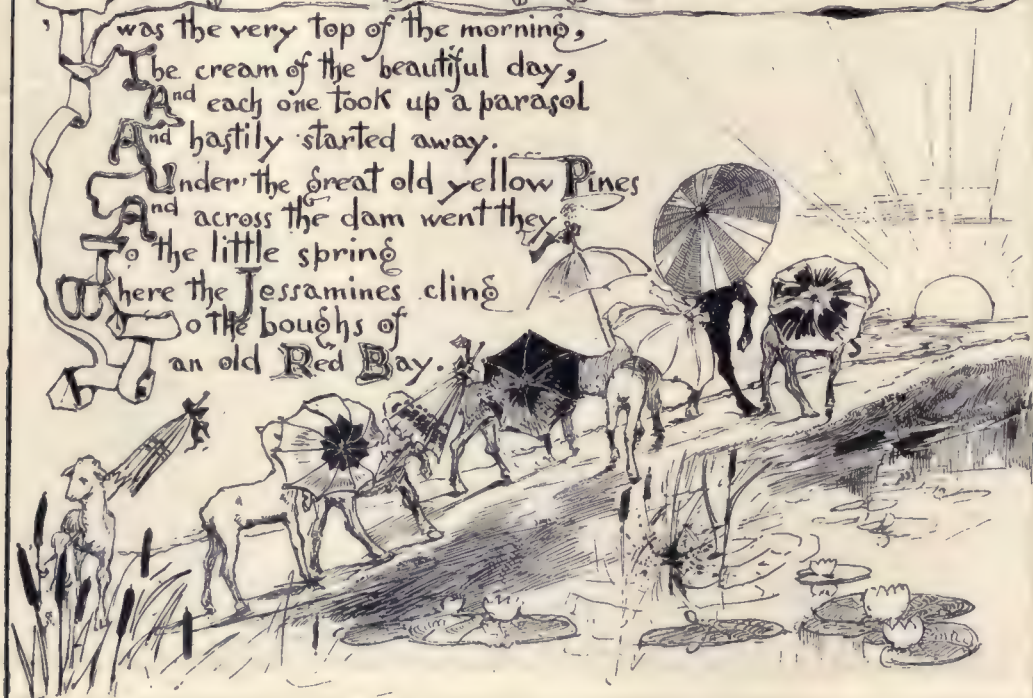 'was the very top of the morning,
The cream of the beautiful day,
And each one took up a parasol
And hastily started away.
Under the great old yellow Pines
And across the dam went they
To the little spring
Where the Jessamines cling
To the boughs of
an old Red Bay.